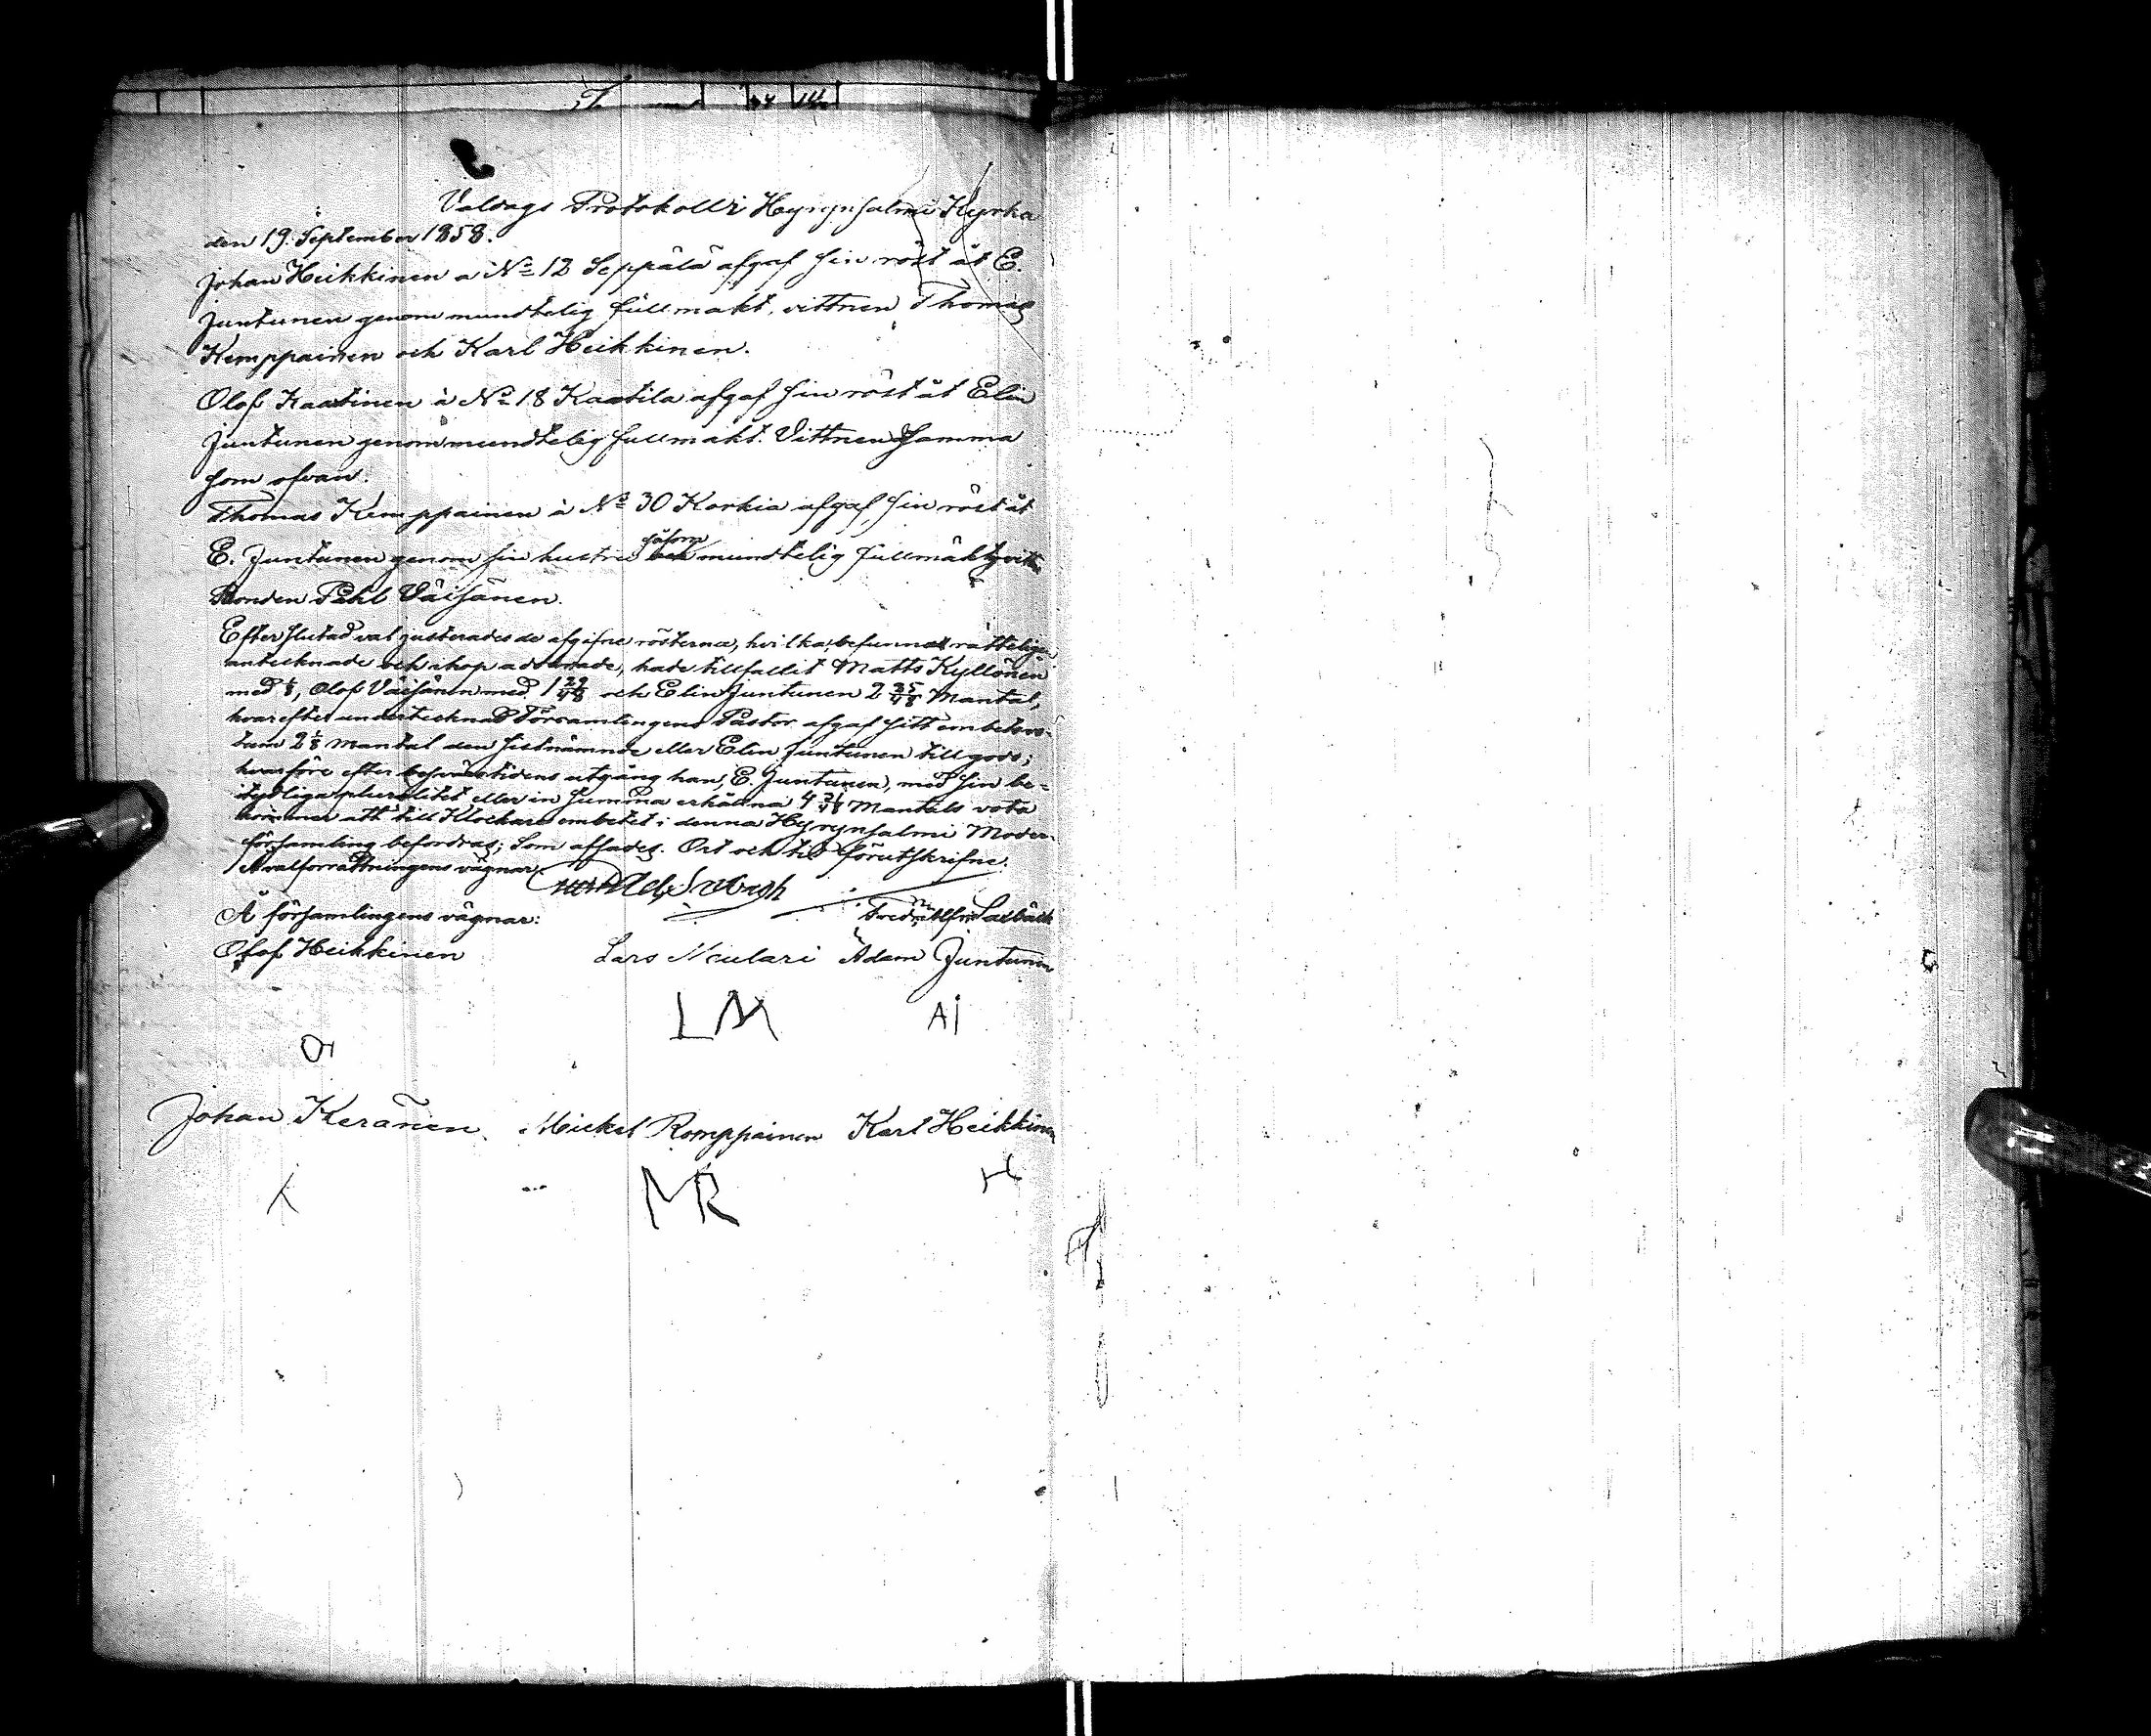 Valdags Protokoll i Hyrynsalmi Kyrka
den 19. September 1858.
Johan Heikkinen a No 12 Seppälä afgaf sin röst åt E.
Juntunen genom mundtelig fullmakt, vittnen Thomas
Kemppainen och Karl Heikkinen.
Olof Kaatinen à No 18 Kaatila afgaf sin röst åt Elin
Juntunen genom mundtelig fullmakt. Vittnen Samma
som ofvan.
Thomas Kemppainen à No 30 Korkia afgaf sin röst åt
såsom
E. Juntunen genom sin hustru och mundtelig fullmakt, vittn
Bonden Påhl Väisänen.
Efter slutad val justerades de afgifne rösterna, hvilka, befunnat rätteligen
antecknade och ihop adderade, hade tillfallit Matts Kyllönen
med 1/8, Olof Väisänen med 1 29/48 och Elin Juntunen 2 25/48 Mantal,
hvarefter undertecknad Församlingens Pastor afgaf sitt embetsvo-
tum 2 1/8 mantal den sistnämnde eller Elin Juntunen tillgodo;
hvarföre efter besvärstidens utgång han, E. Juntunen, med sin be-
tydliga pluralitet eller in Summa erhållna 4 31/48 Mantals vota
kommer att till Klockare embetet i denna Hyrynsalmi Moder-
församling befordras; Som affades. Ort och tid förutskrifne.
På valförrättningens vägnar
Å församlingens vägnar:
Olof Heikkinen Lars Moulari Adam Juntunen
LM AJ
Johan Keränen Mickel Romppainen Karl Heikkinen
MR H